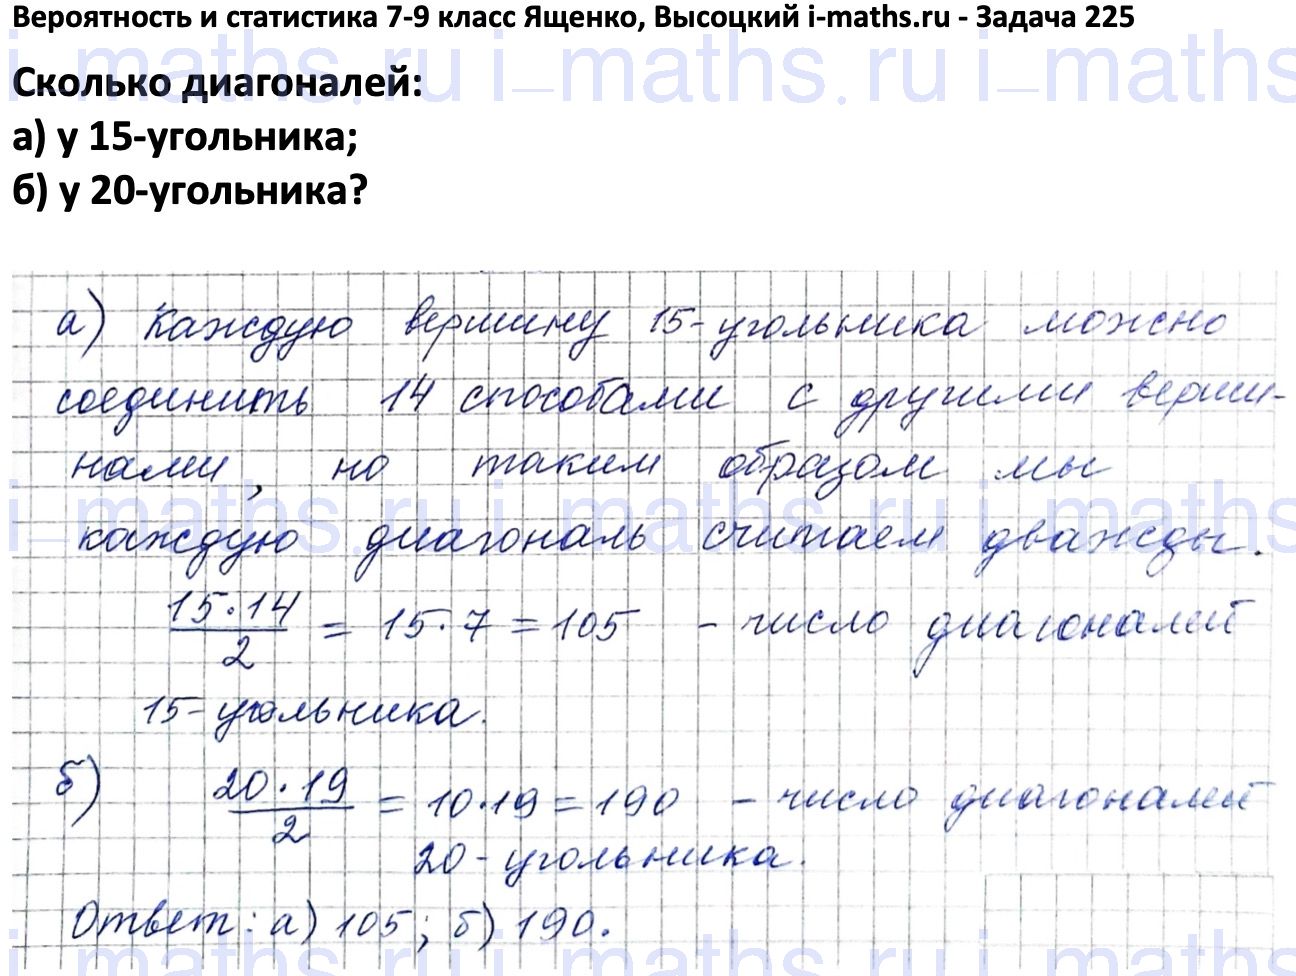 Вероятность и статистика 7-9 класс Ященко, Высоцкий i-maths.ru - Задача 225
i-maths.ru i-maths.ru i-maths
Сколько диагоналей:
а) у 15-угольника;
б) у 20-угольника?
а) Каждую вершину 15-угольника можно
соединить 14 способами с другими верши-
нами, но таким образом мы
i-maths.ru i-maths.ru i-maths
каждую диагональ считаем дважды.
15·14/2 = 15·7 = 105 - число диагоналей
15-угольника.
б) 20·19/2 = 10·19 = 190 - число диагоналей
20-угольника.
Ответ: а) 105; б) 190.
i-maths.ru i-maths.ru i-maths